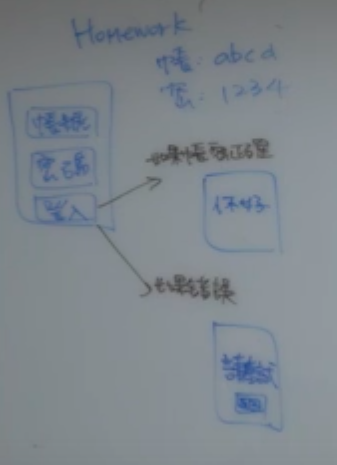 Homework
帳: abcd
密: 1234
帳號
密碼
登入
如果帳密正確
你好
如果錯誤
請重試